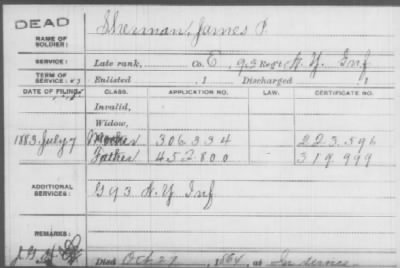 DEAD
NAME OF SOLDIER: Sherman, James P.
SERVICE: Late rank, Co. E, 93 Reg't N.Y. Inf
TERM OF SERVICE: Enlisted , 1 Discharged , 1
DATE OF FILING. CLASS. APPLICATION NO. LAW. CERTIFICATE NO.
Invalid,
Widow,
1883, July 7 Mother 306334 223.596
Father 452800 - 319.999
ADDITIONAL SERVICES: G 93 N.Y Inf
REMARKS:
Died Oct 27, 1864, at In service.